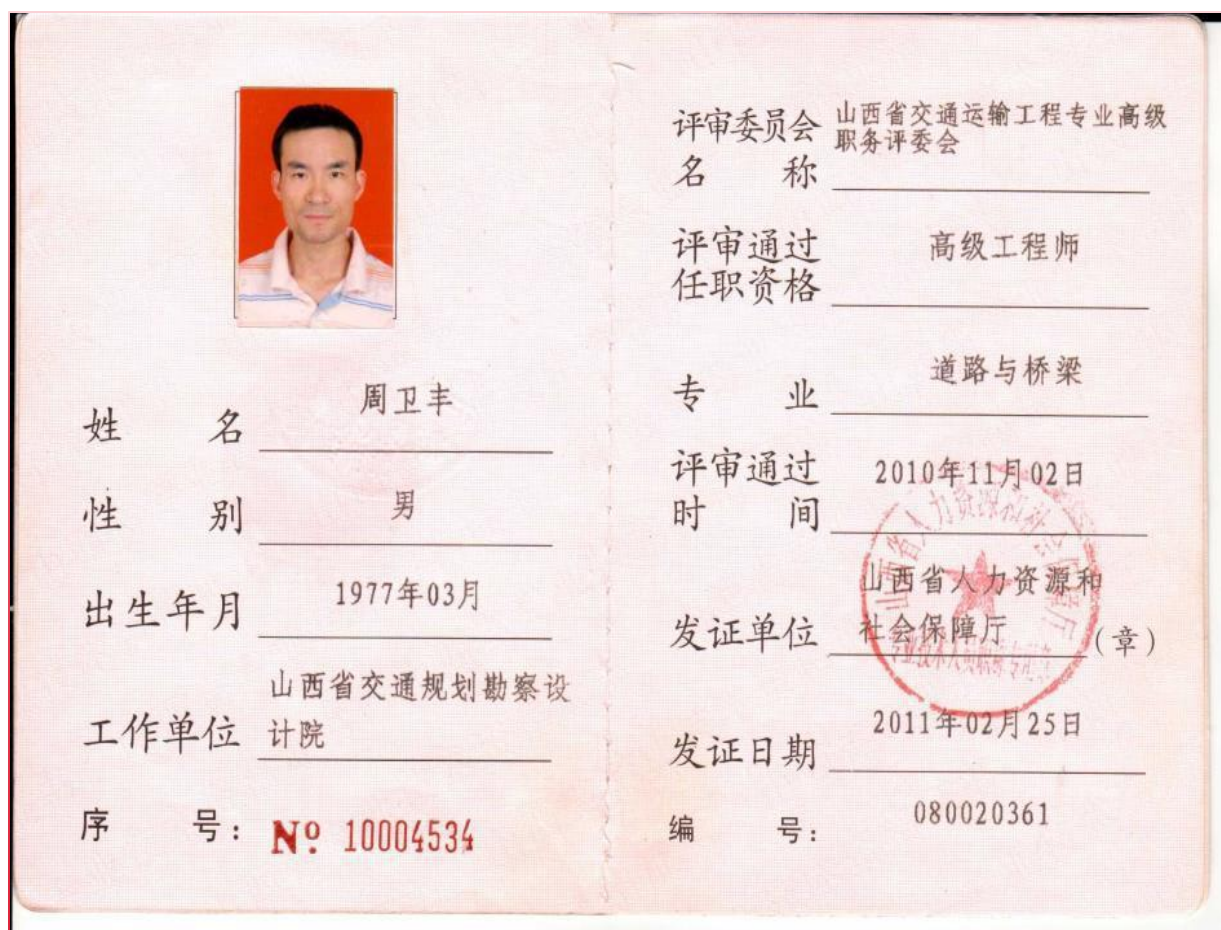 姓名 周卫丰
性别 男
出生年月 1977年03月
工作单位 山西省交通规划勘察设
计院
序号: Nº 10004534
评审委员会 山西省交通运输工程专业高级
名称 职务评委会
评审通过 高级工程师
任职资格
专业 道路与桥梁
评审通过 2010年11月02日
时间
发证单位 山西省人力资源和
社会保障厅 (章)
发证日期 2011年02月25日
编号: 080020361
山西省人力资源和社会保障厅